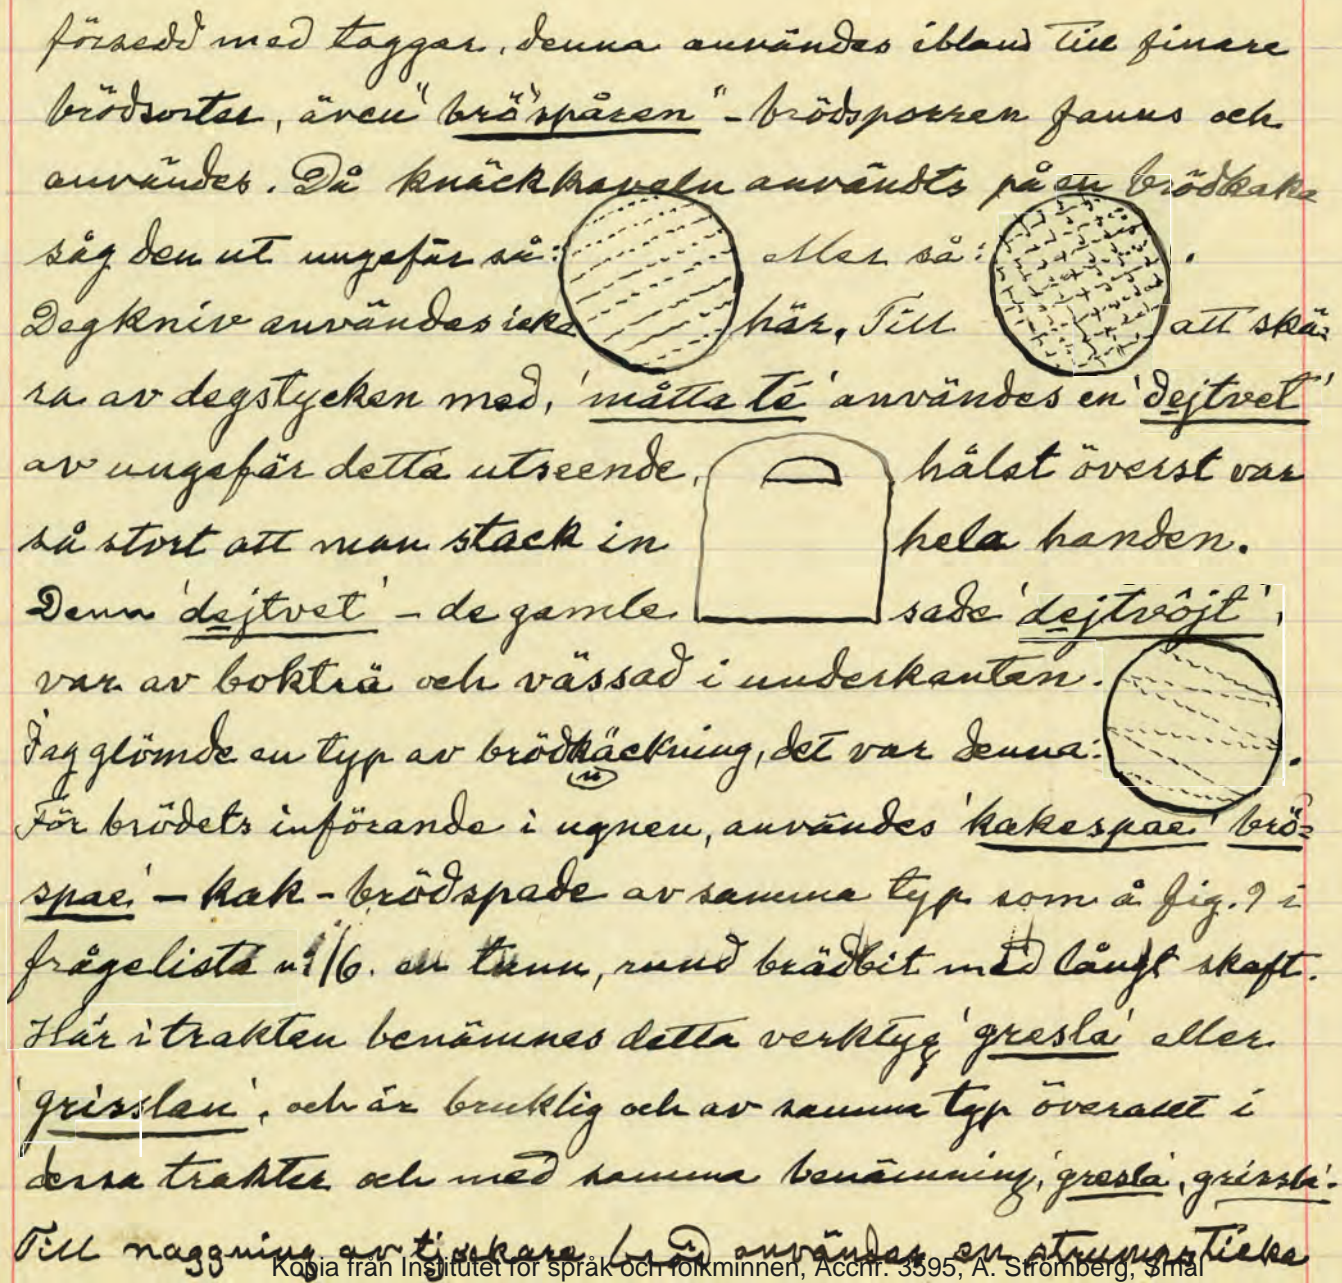 försedd med taggar, denna användes ibland till finare
brödsorter, även "brö'spåren" - brödsporren fanns och
användes. Då knäckkaveln användts på en brödkaka
såg den ut ungefär så: eller så: .
Degkniv användes icke här. Till att skä-
ra av degstycken med, 'måtta te' användes en 'dejtvet'
av ungefär detta utseende, hålet överst var
så stort att man stack in hela handen.
Denn 'dejtvet' - de gamle sade 'dejtvôjt',
var av bokträ och vässad i underkanten.
Jag glömde en typ av brödkäckning, det var denna: .
n
För brödets införande i ugnen, användes 'kakespae' brö-
spae' - kak - brödspade av samma typ som å fig. 9 i
frågelista nr 16. en tunn, rund brädbit med långt skaft.
Här i trakten benämnes detta verktyg 'gresla' eller
'grisslan', och är bruklig och av samma typ överallt i
dessa trakter och med samma benämning, 'gresla', grissla'.
Till naggning av tjockare bröd användes en strumpsticka
Kopia från Institutet för språk och folkminnen, Accnr. 3595, A. Strömberg, Smål